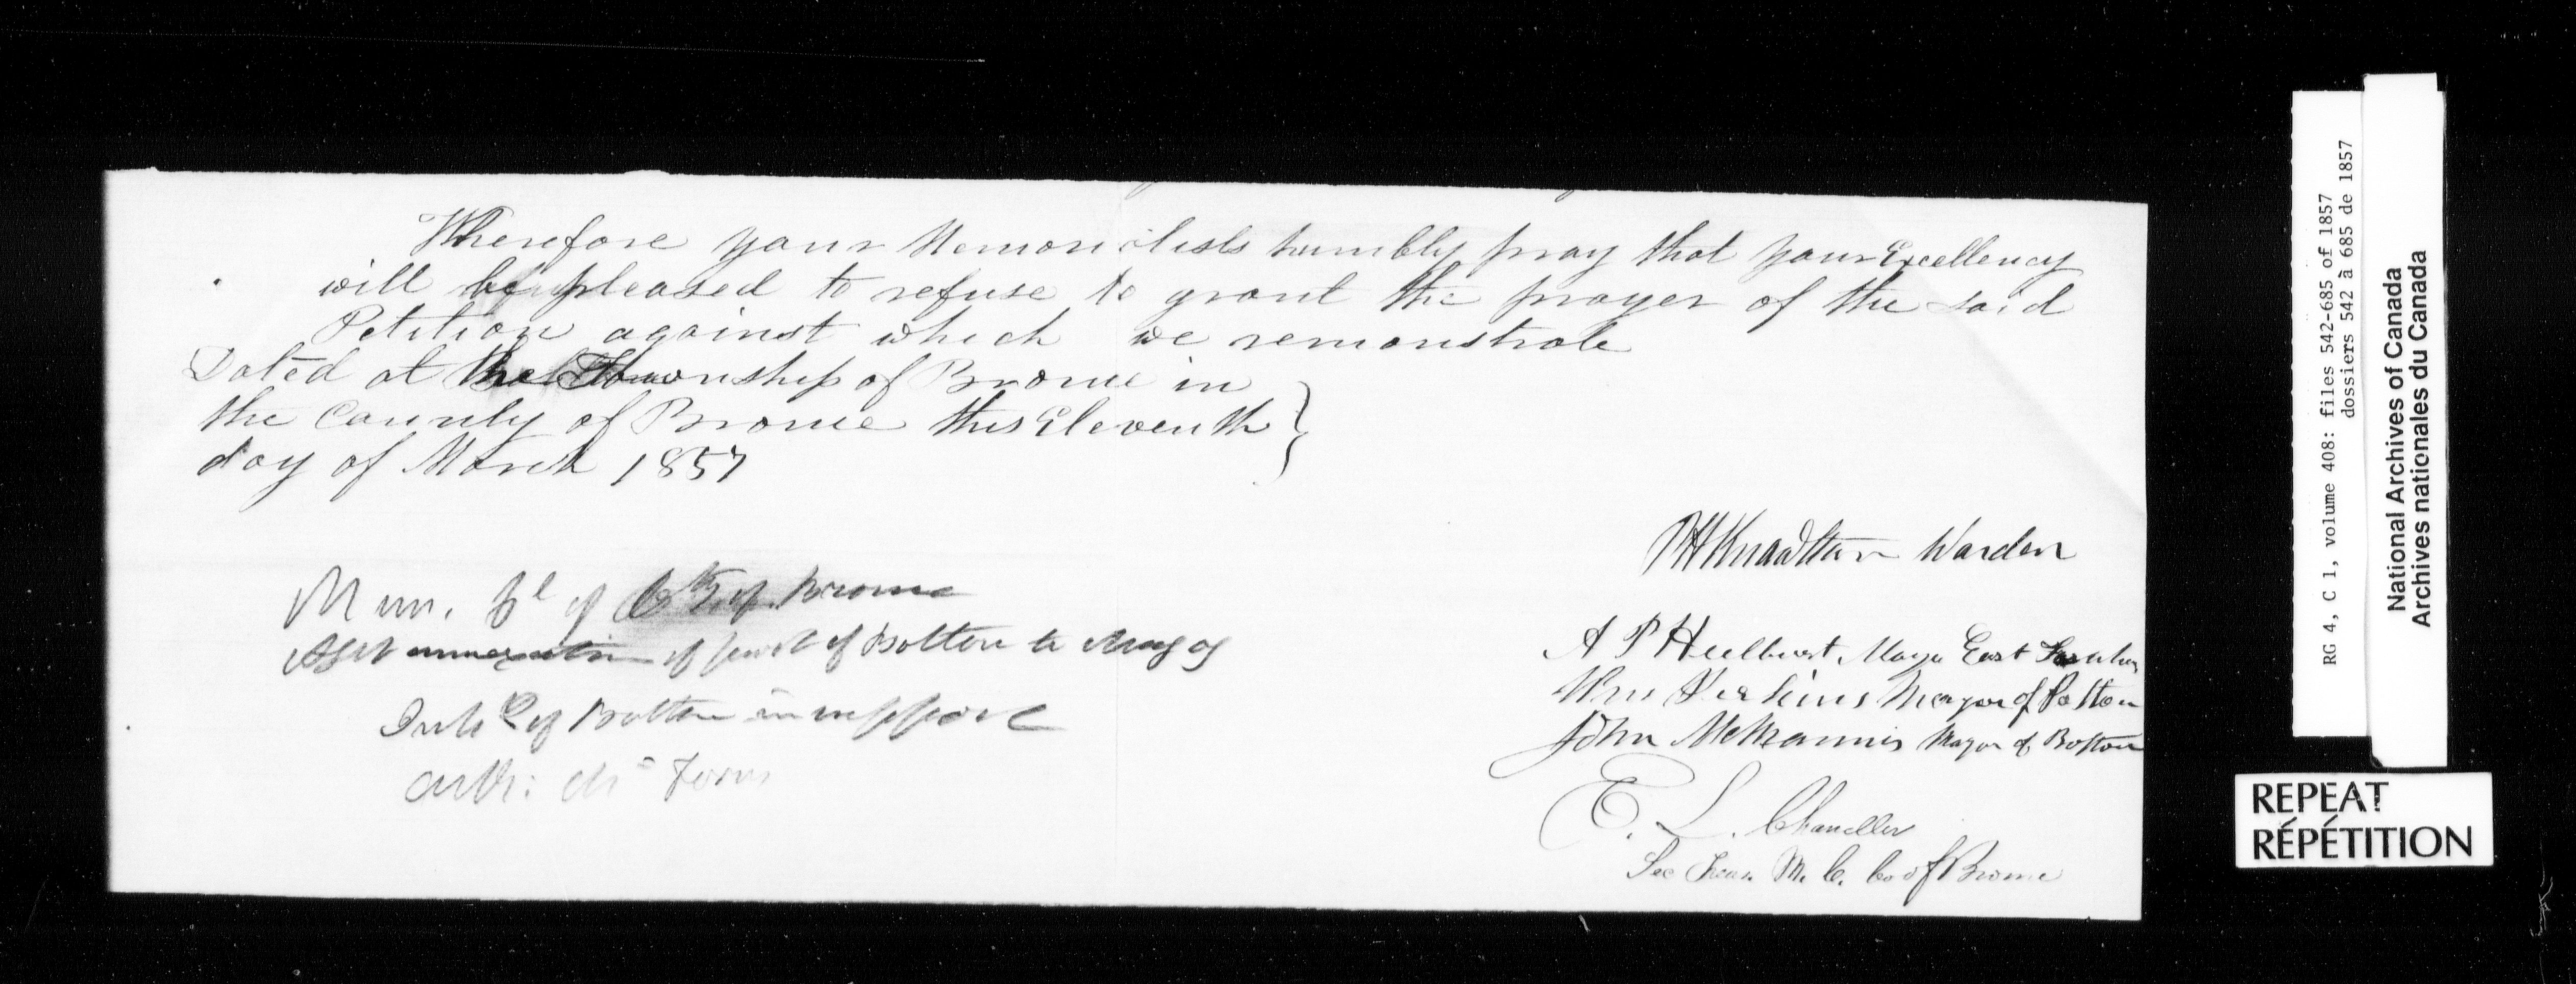 Wherefore your Memorialists humbly pray that your Excellency
will be pleased to refuse to grant the prayer of the said
Petition against which we remonstrate
Dated at the Township of Brome in
the County of Brome this Eleventh
day of March 1857
P H Knowlton Warden
A P Hulburt Mayor East Farnham
Wm Perkins Mayor of Potton
John McMannis Mayor of Bolton
E. L. Chandler
Sec Treas M. C. Co of Brome
Mun. Cl of Cty of Brome
Agst annexation of part of Bolton to Magog
Inhts of Bolton in support
RG 4, C 1, volume 408: files 542-685 of 1857
dossiers 542 à 685 de 1857
National Archives of Canada
Archives nationales du Canada
REPEAT
RÉPÉTITION